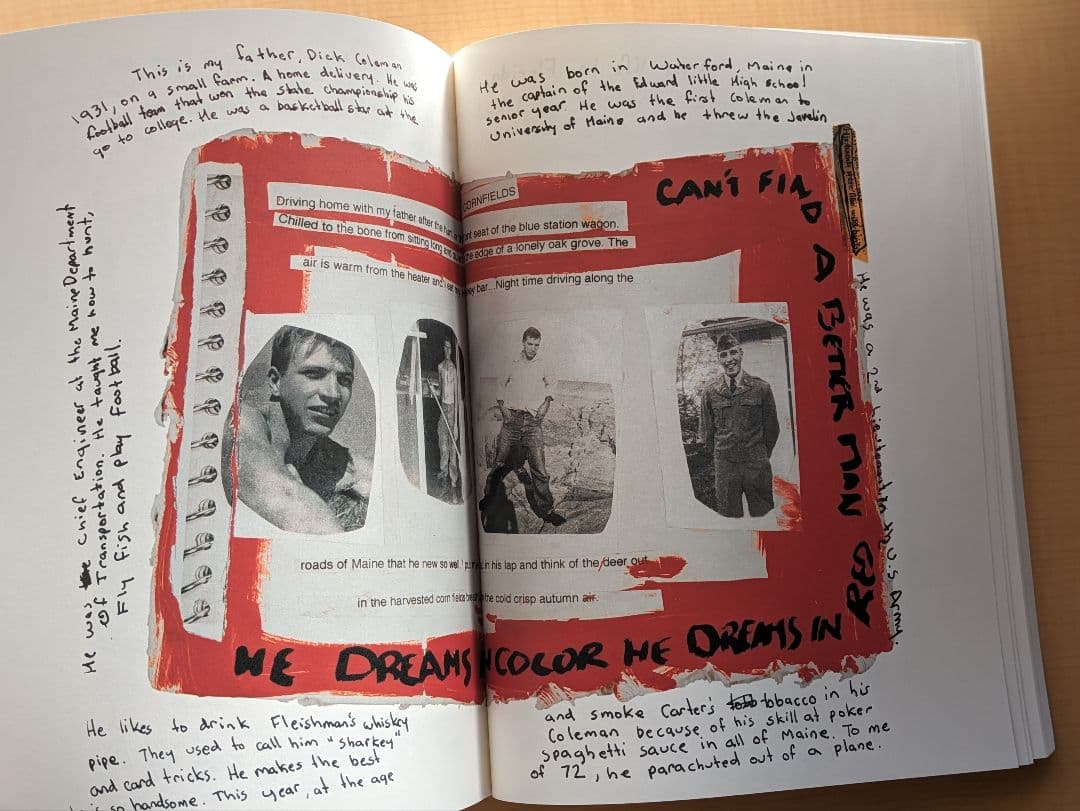 This is my father, Dick Coleman. He was born in Waterford, Maine in
1931, on a small farm. A home delivery. He was the captain of the Edward little High School
football team that won the state championship his senior year. He was the first Coleman to
go to college. He was a basketball star at the University of Maine and he threw the Javelin
He was a 2nd lieutenant in the U.S Army.
CORNFIELDS
Driving home with my father after the hunt front seat of the blue station wagon.
Chilled to the bone from sitting long and the edge of a lonely oak grove. The
air is warm from the heater and I eat my bar...Night time driving along the
roads of Maine that he new so well. I put my in his lap and think of the deer out
in the harvested corn fields the cold crisp autumn air.
CAN'T FIND A BETTER MAN
HE DREAMS IN COLOR HE DREAMS IN
He was the Chief Engineer at the Maine Department
of Transportation. He taught me how to hunt,
Fly fish and play football.
He likes to drink Fleishman's whiskey and smoke Carter's tobacco in his
pipe. They used to call him "Sharkey" Coleman because of his skill at poker
and card tricks. He makes the best spaghetti sauce in all of Maine. To me
is so handsome. This year, at the age of 72, he parachuted out of a plane.